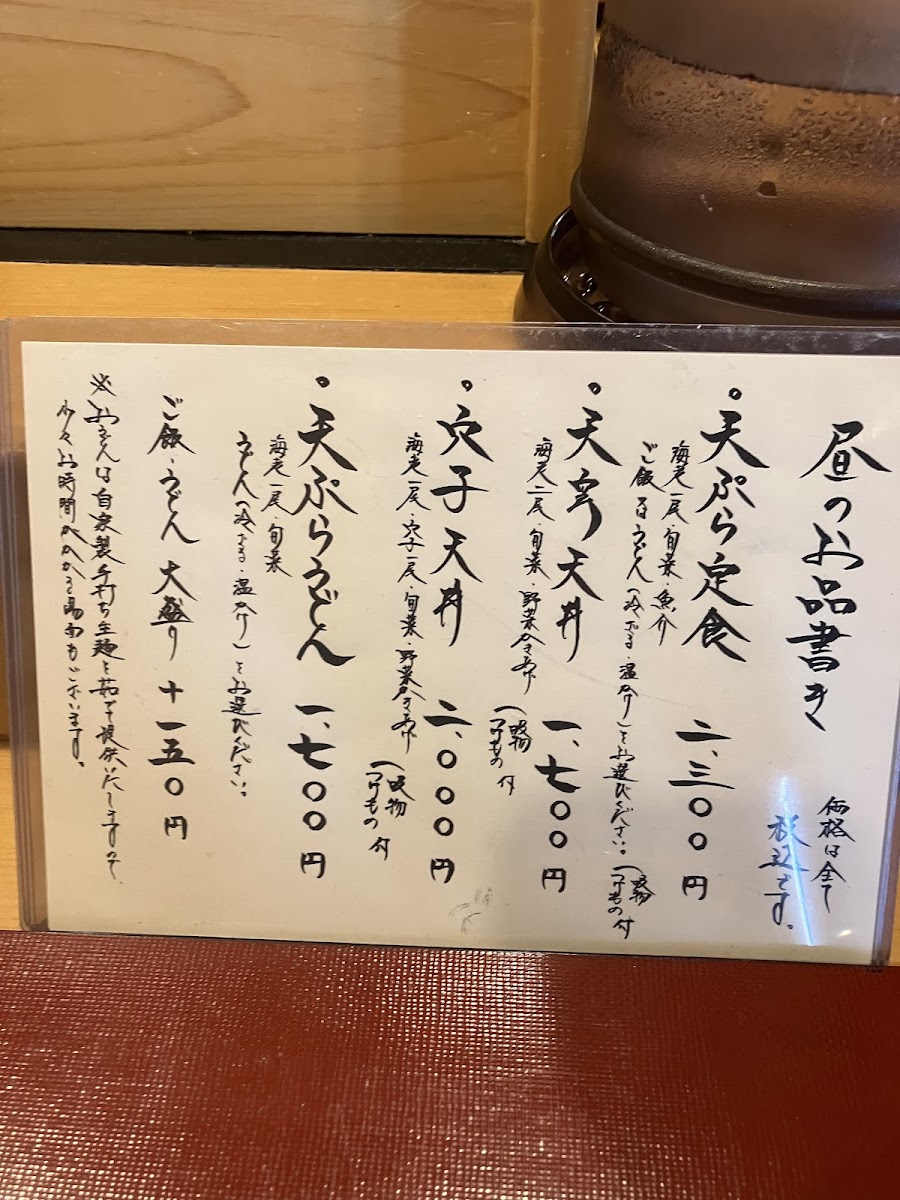 昼のお品書き
価格は全て
税込です。
。天ぷら定食 二、三〇〇円
海老一尾・旬菜・魚介
ご飯 又は うどん(冷ざる・温かけ)をお選びください。(吸物 つけもの 付
。天亭天丼 一、七〇〇円
海老二尾・旬菜・野菜かきあげ (吸物 つけもの 付
。穴子天丼 二、〇〇〇円
海老一尾・穴子一尾・旬菜・野菜かきあげ (吸物 つけもの 付
。天ぷらうどん 一、七〇〇円
海老一尾・旬菜
うどん(冷ざる・温かけ)をお選びください。
ご飯・うどん 大盛り +一五〇円
※おうどんは自家製手打ち生麺を茹で提供いたしますので
少々お時間がかかる場合もございます。